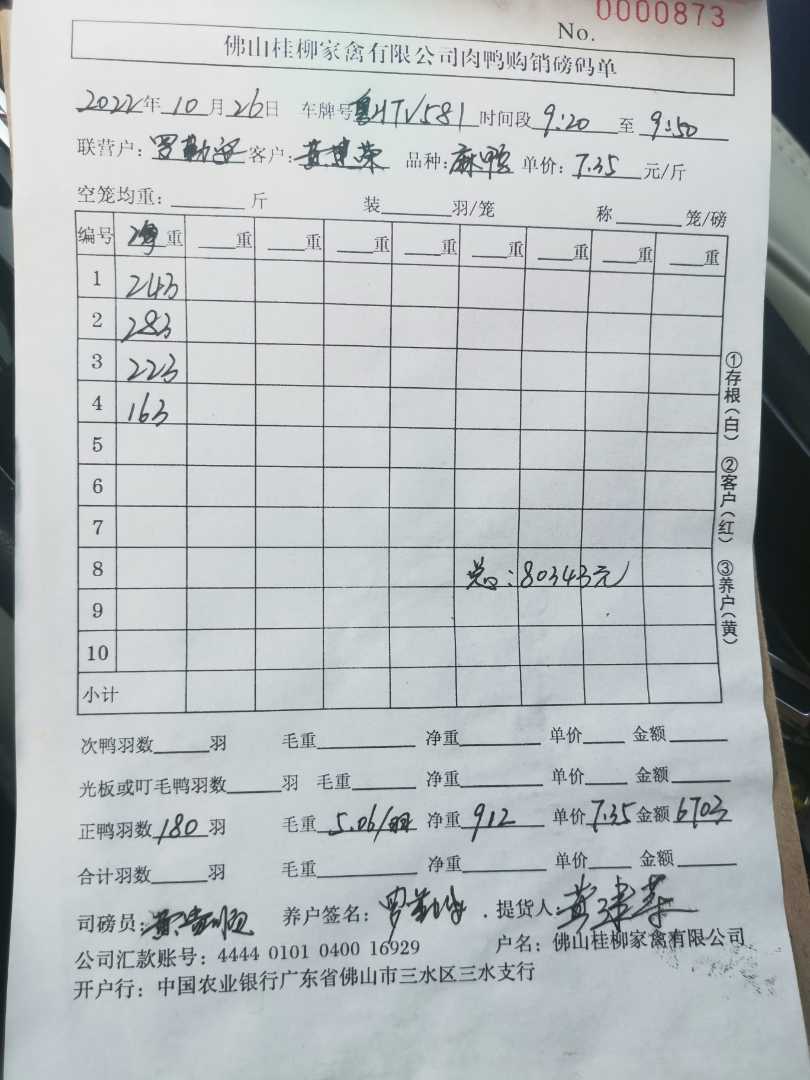 0000873
No.
佛山桂柳家禽有限公司肉鸭购销磅码单
2022年10月26日 车牌号粤HTV581 时间段9:20至9:50
联营户: 罗 客户: 黄建荣 品种: 麻鸭 单价: 7.35元/斤
空笼均重: 斤 装 羽/笼 称 笼/磅
编号 净重 重 重 重 重 重 重 重 重
1 243
2 283
3 223
4 163
5
6
7
8 总:80343元
9
10
小计
①存根(白) ②客户(红) ③养户(黄)
次鸭羽数 羽 毛重 净重 单价 金额
光板或叮毛鸭羽数 羽 毛重 净重 单价 金额
正鸭羽数180羽 毛重5.06/羽 净重912 单价7.35金额6703
合计羽数 羽 毛重 净重 单价 金额
司磅员: 黄 养户签名: 罗 提货人: 黄建荣
公司汇款账号: 4444 0101 0400 16929 户名: 佛山桂柳家禽有限公司
开户行: 中国农业银行广东省佛山市三水区三水支行